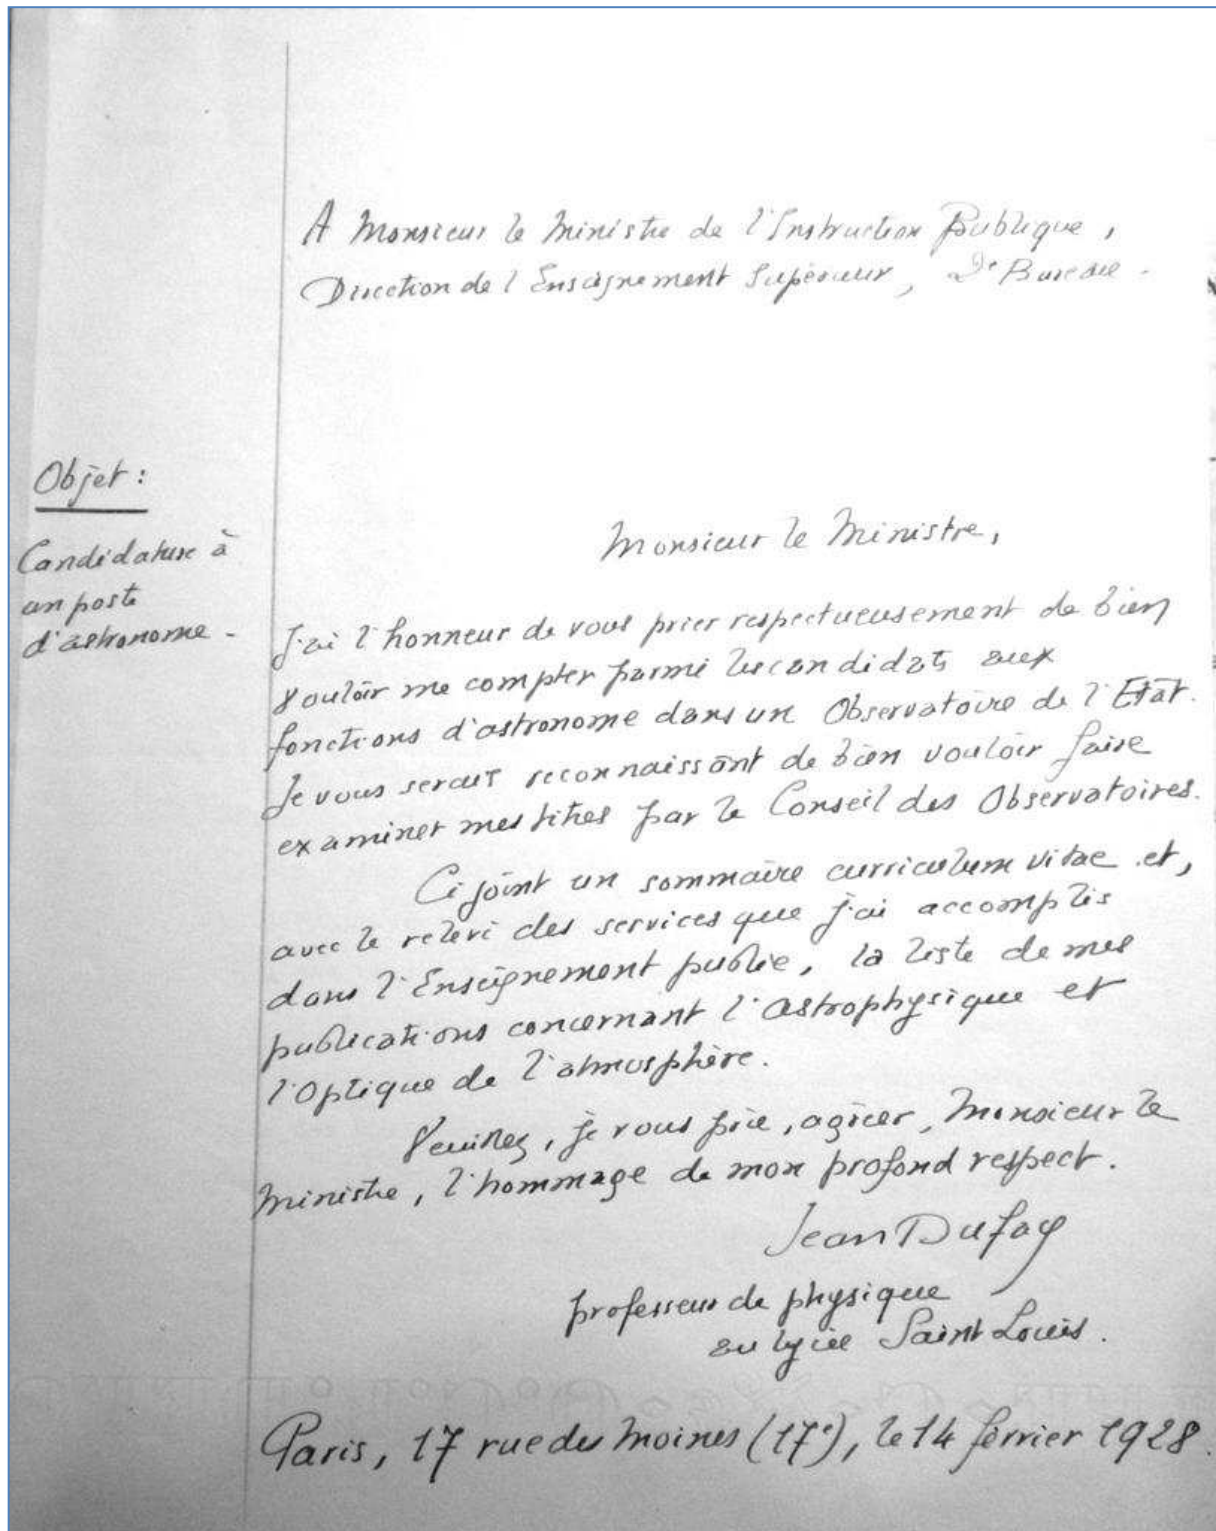 A Monsieur le Ministre de l'Instruction Publique,
Direction de l'Enseignement Supérieur, 2e Bureau.
Objet :
Candidature à
un poste
d'astronome -
Monsieur le Ministre,
J'ai l'honneur de vous prier respectueusement de bien
vouloir me compter parmi les candidats aux
fonctions d'astronome dans un Observatoire de l'Etat.
Je vous serais reconnaissant de bien vouloir faire
examiner mes titres par le Conseil des Observatoires.
Ci joint un sommaire curriculum vitae et,
avec le relevé des services que j'ai accomplis
dans l'Enseignement public, la liste de mes
publications concernant l'Astrophysique et
l'Optique de l'atmosphère.
Veuillez, je vous prie, agréer, Monsieur le
Ministre, l'hommage de mon profond respect.
Jean Dufay
professeur de physique
au lycée Saint Louis.
Paris, 17 rue des Moines (17e), le 14 février 1928.